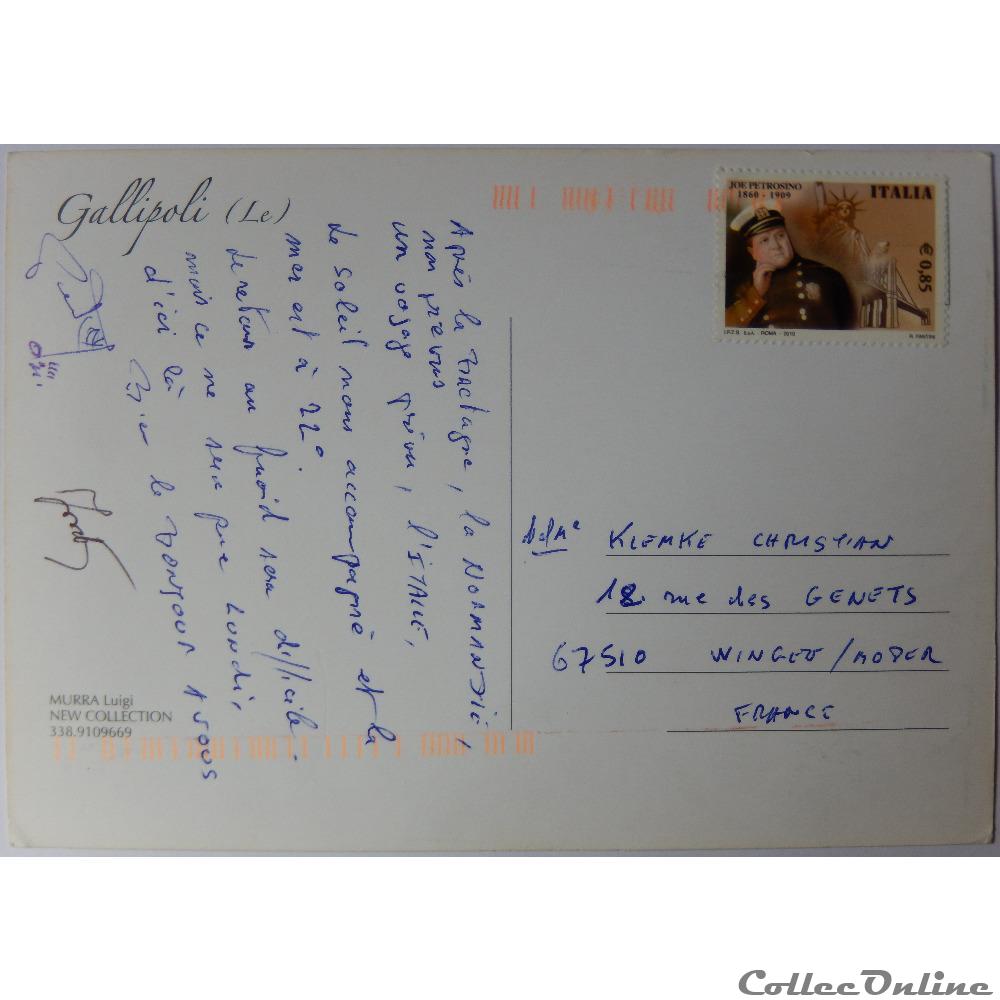 Gallipoli (Le)
Après la BRETAGNE, la NORMANDIE,
non prévus
un voyage prévu, l'ITALIE,
Le soleil nous accompagne et la
mer est à 22°.
Le retour au froid sera difficile.
mais ce ne sera que Lundi,
d'ici là
le BONJOUR A VOUS
MURRA Luigi
NEW COLLECTION
338.9109669
JOE PETROSINO
1860 - 1909
ITALIA
€ 0,85
I.P.Z.S. S.p.A. - ROMA - 2010
KLEMKE CHRISTIAN
18 rue des GENETS
67510 WINGEN/MODER
FRANCE
CollecOnline